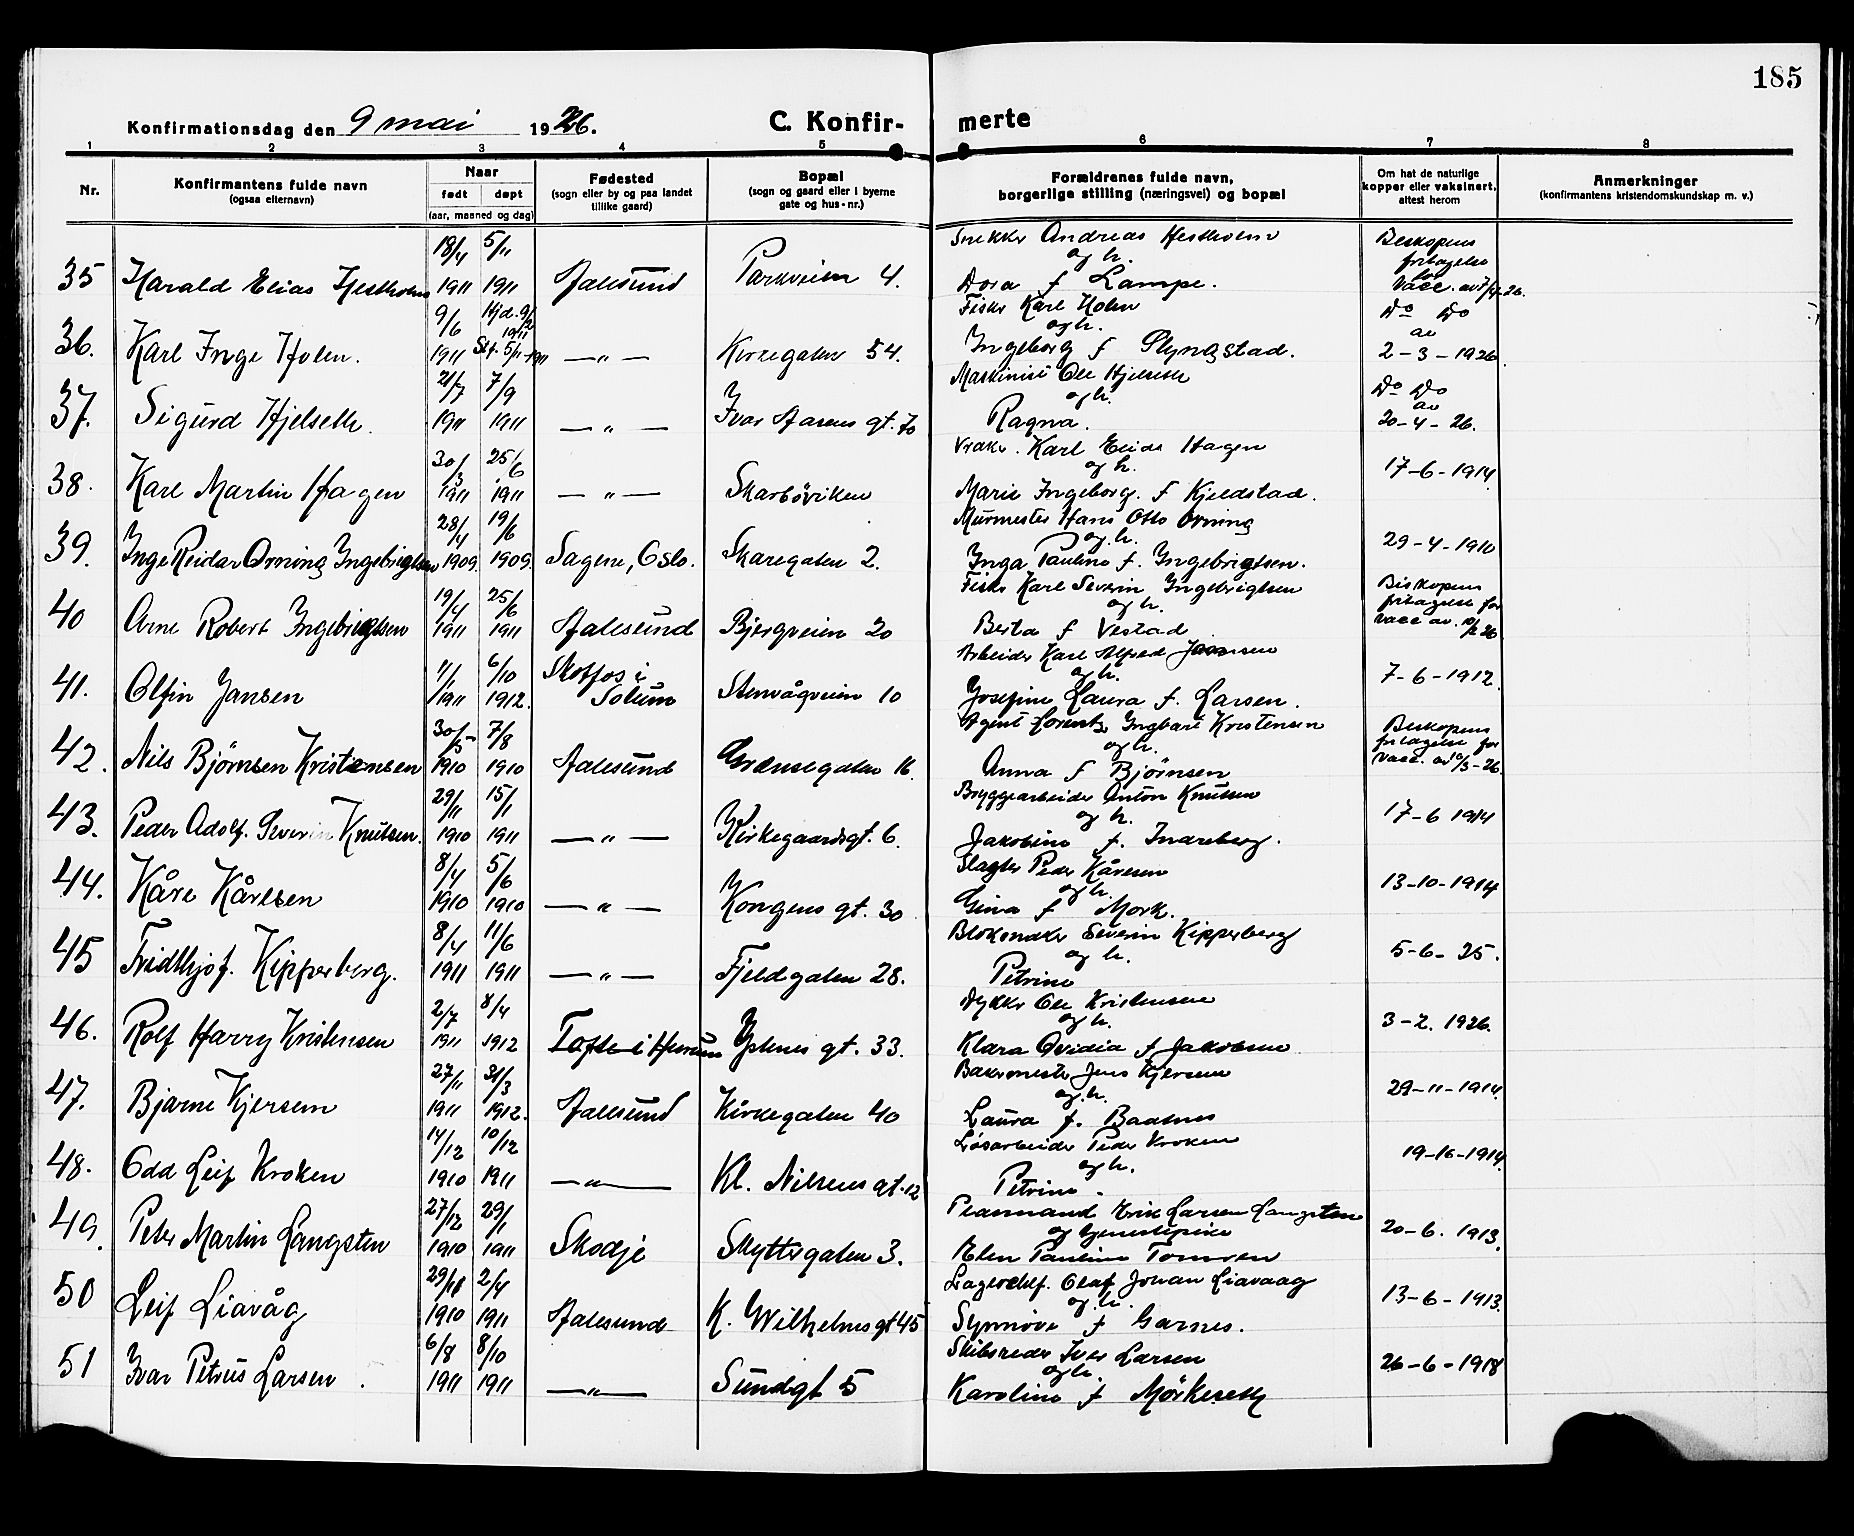 185
Konfirmationsdag den 9 mai 1926.
C. Konfirmerte
1 2 3 4 5 6 7 8
Nr.
Konfirmantens fulde navn
(ogsaa efternavn)
Naar
født døpt
(aar, maaned og dag)
Fødested
(sogn eller by og paa landet
tillike gaard)
Bopæl
(sogn og gaard eller i byerne
gate og hus-nr.)
Forældrenes fulde navn,
borgerlige stilling (næringsvei) og bopæl
Om hat de naturlige
kopper eller vaksinert,
attest herom
Anmerkninger
(konfirmantens kristendomskundskap m. v.)
18/4 5/11 Snekker Andreas Hestholm Biskopens
og h. fritagelse
35 Harald Elias Hestholm 1911 1911 Aalesund Parkveien 4. Dora f Lampe. for vacc. av
9/6 Hjd. Fisker Karl Holen Do Do
og h. av
36. Karl Inge Holen. 1911 Kirkegaten 54. Ingeborg f Slyngstad. 2-3-1926
21/7 7/9 Maskinist Ole Hjelseth Do Do
og h. av
37. Sigurd Hjelseth. 1911 1911 — „ — Ivar Aasens gt. 70 Ragna. 20-4-26.
30/3 25/6 Vraker. Karl Elias Hagen
og h. 17-6-1914
38. Karl Martin Hagen 1911 1911 — „ — Skarbøviken Marie Ingeborg. f Kjeldstad.
28/4 19/6 Murmester Hans Otto Orning
og h. 29-4-1910
39. Inge Reidar Orning Ingebrigtsen 1909 1909. Sagene, Oslo. Skaregaten 2. Inga Pauline f. Ingebrigtsen.
19/4 25/6 Fisker Karl Severin Ingebrigtsen Biskopens
og h. fritagelse for
40 Arne Robert Ingebrigtsen 1911 1911 Aalesund Bjergveien 20 Berta f Vestad vacc av.
1/1 6/10 Skotfos i Arbeider Karl Alfred Jansen
og h. 7-6-1912
41. Olfin Jansen 1911 1912. Solum Stenvågveien 10 Josefine Laura f. Larsen.
30/5 7/8 Agent Lorentz Ingbart Kristensen Biskopens
og h. fritagelse for
42. Nils Bjørnsen Kristensen 1910 1910 Aalesund Grænsegaten 16. Anna f Bjørnsen vacc. av
29/11 15/1 Bryggearbeider Anton Knutsen
og h. 17-6 1914
43. Peder Adolf. Severin Knutsen. 1910 1911 — „ — Kirkegaardsgt. 6. Jakobine f. Indreberg.
8/4 5/6 Slagter Peder Kåresen
og h. 13-10-1914
44. Kåre Kåresen 1910 1910 — „ — Kongens gt. 30 Gina f Mork.
8/4 11/6 Severin Kipperberg
og h. 5-6-25.
45 Fridthjof. Kipperberg. 1911 1911 — „ — Fjeldgaten 28. Petrine
2/7 8/4 Dykker Ole Kristensen
og h. 3-2. 1926.
46. Rolf Harry Kristensen 1911 1912 Tofte i Hurum Ystenes gt. 33. Klara Ovidia f Jakobsen
27/11 31/3 Bakermester Jens Kjersem
og h. 29-11-1914
47. Bjarne Kjersem 1911 1912. Aalesund Kirkegaten 40 Laura f. Baatnes
14/12 10/12 Løsarbeider Peder Kroken
og h. 19-10-1914
48. Odd Leif Kroken 1910 1911 — „ — Kl. Nilsens gt. 12 Petrine.
27/12 29/1 Plasmand Erik Larsen Langsten
og tjenestepike 20-6. 1913.
49. Peter Martin Langsten 1910 1911 Skodje Skyttergaten 3. Elen Pauline Tomren
29/10 2/4 Lagerchef. Olaf Johan Liavaag
og h. 13-6-1913.
50 Leif Liavåg 1910 1911 Aalesund K. Wilhelms gt 45 Synnøve f Garnes.
6/8 8/10 Skibsreder Iver Larsen
og h. 26-6-1918
51 Ivar Petrus Larsen. 1911 1911 — „ — Sundgt 5 Karoline f Mörkeseth